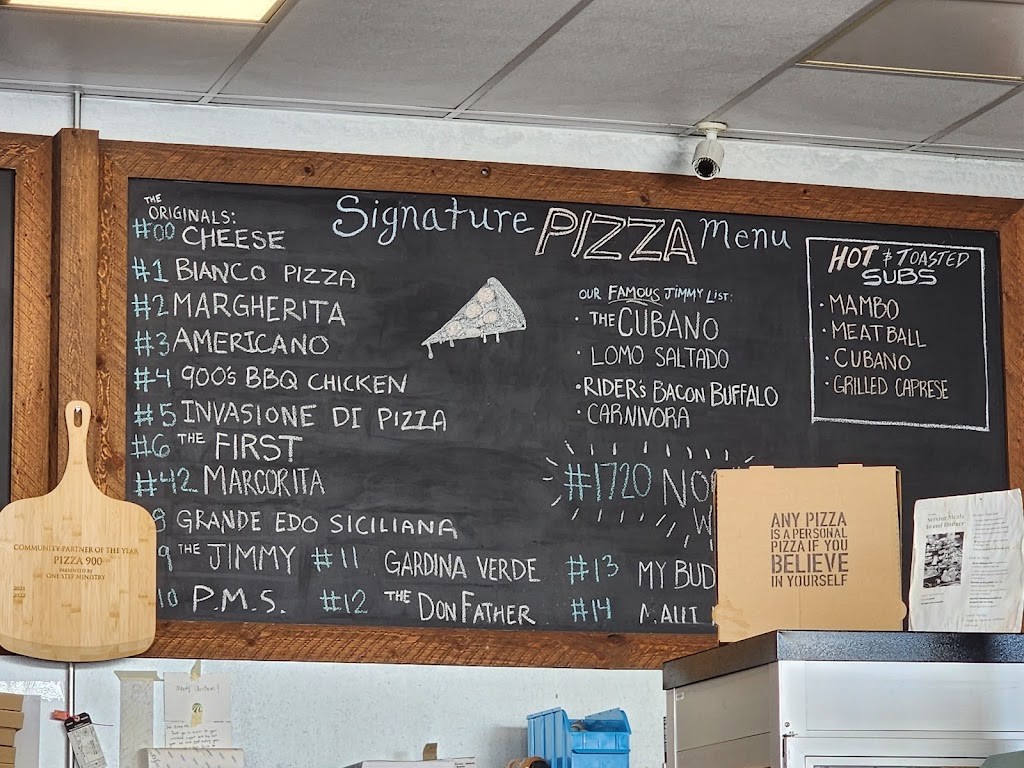 Signature PIZZA Menu
THE ORIGINALS:
#00 CHEESE
#1 BIANCO PIZZA
#2 MARGHERITA
#3 AMERICANO
#4 900's BBQ CHICKEN
#5 INVASIONE DI PIZZA
#6 THE FIRST
#42 MARCORITA
8 GRANDE EDO SICILIANA
9 THE JIMMY
10 P.M.S.
#11 GARDINA VERDE
#12 THE DONFATHER
OUR FAMOUS JIMMY LIST:
· THE CUBANO
· LOMO SALTADO
· RIDER's BACON BUFFALO
· CARNIVORA
#1720
#13 MY BUD
#14
HOT & TOASTED
SUBS
· MAMBO
· MEATBALL
· CUBANO
· GRILLED CAPRESE
ANY PIZZA
IS A PERSONAL
PIZZA IF YOU
BELIEVE
IN YOURSELF
COMMUNITY PARTNER OF THE YEAR
PIZZA 900
PRESENTED BY
ONE STEP MINISTRY
2021
2022